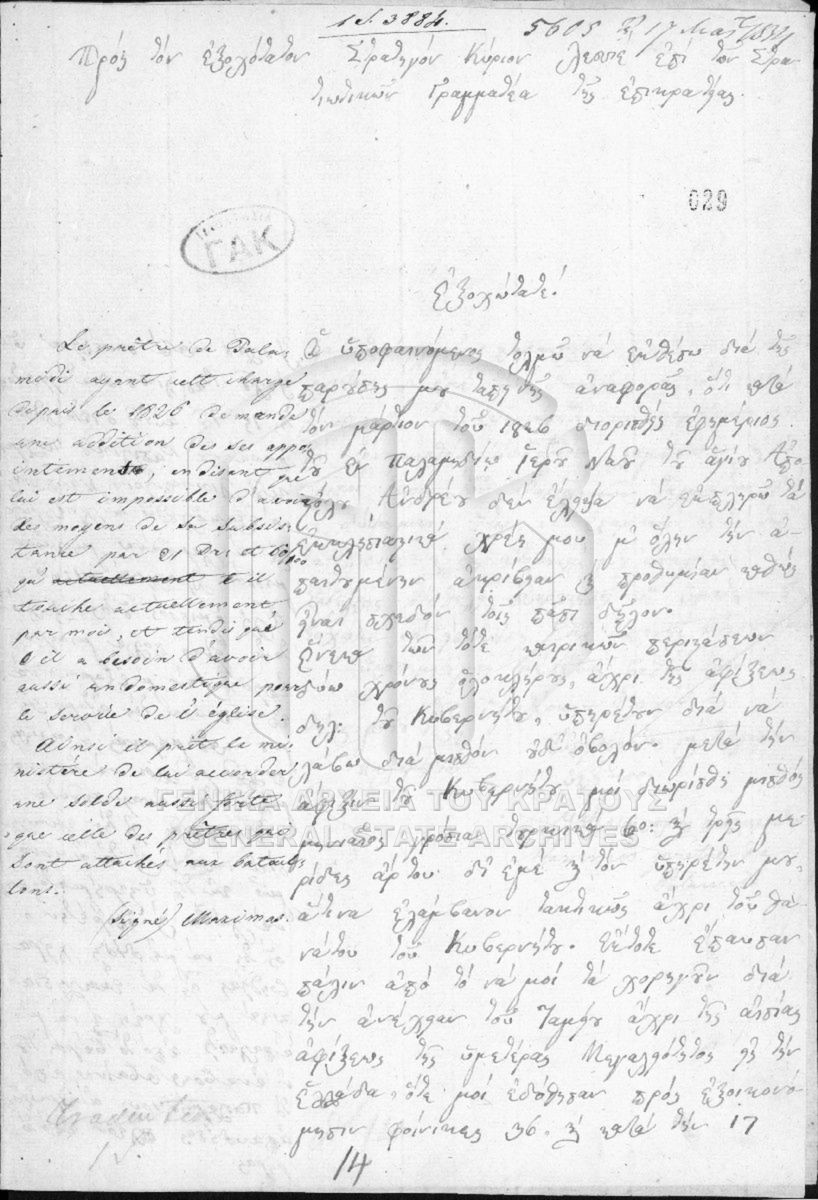 1 S. 3884.
5605 17 1834
Πρός τόν ἐξοχώτατον Στρατηγόν Κύριον Λεσσὲ ἐπί τῶν Στρα
τιωτικῶν Γραμματέα τῆς ἐπικρατείας.
029
ΓΑΚ
Ἐξοχώτατε!
Le prêtre de Pala-
midi ayant cett charge
depuis le 1826 demande
une addition des ses appo
intements, en disant que
lui est impossible d'avoir
des moyens de sa subsis
tance par 21 Drs et
qu' actuellement il
touche actuellement
par mois, et tandis que
il a besoin d'avoir
aussi un domestique pour
le service de l'église.
Ainsi il prêt le mi-
nistère de lui accorder
une solde aussi forte
que celle des prêtres qui
sont attachés aux batail-
lons.
(signé) Maximos.
Ὁ ὑποφαινόμενος τολμῶ νά ἐκθέσω διά τῆς
παρούσης μου ταπεινῆς ἀναφορᾶς, ὅτι κατά
τόν μάρτιον τοῦ 1826 διορισθείς ἐφημέριος
τοῦ ἐν Παλαμηδίῳ ἱεροῦ Ναοῦ τοῦ ἁγίου Ἀπο
στόλου Ἀνδρέου δέν ἔλειψα νά ἐκπληρῶ τά
ἐκκλησιαστικά χρέη μου μ' ὅλην τήν ἀ-
παιτουμένην ἀκρίβειαν καὶ προθυμίαν καθώς
εἶναι σχεδόν τοῖς πᾶσι δῆλον.
Ἕνεκα τῶν τότε καιρικῶν περιστάσεων
δύω χρόνους ὁλοκλήρους, ἄχρι τῆς ἀφίξεως
δηλ: τοῦ Κυβερνήτου, ὑπηρέτουν διά νά
λάβω διά μισθόν οὐδ' ὀβολόν. μετά τήν
ἄφιξιν τοῦ Κυβερνήτου μοί διωρίσθη μισθός
μηνιαῖος γρόσια τουρκικά 60: καὶ τρεῖς με
ρίδες ἄρτου δι' ἐμέ καὶ τόν ὑπηρέτην μου,
ἅτινα ἐλάμβανον τακτικῶς ἄχρι τοῦ θα-
νάτου τοῦ Κυβερνήτου. Ἔκτοτε ἔπαυσαν
πάλιν ἀπό τό νά μοί τά χορηγοῦν διά
τήν ἀνέχειαν τοῦ Ταμείου ἄχρι τῆς αἰσίας
ἀφίξεως τῆς ὑμετέρας Μεγαλειότητος εἰς τήν
Ἑλλάδα, ὅτε μοί ἐδόθησαν πρός ἐξοικονό
μησιν φοίνικες 36. καὶ κατά τήν 17
14
ΓΕΝΙΚΑ ΑΡΧΕΙΑ ΤΟΥ ΚΡΑΤΟΥΣ
GENERAL STATE ARCHIVES